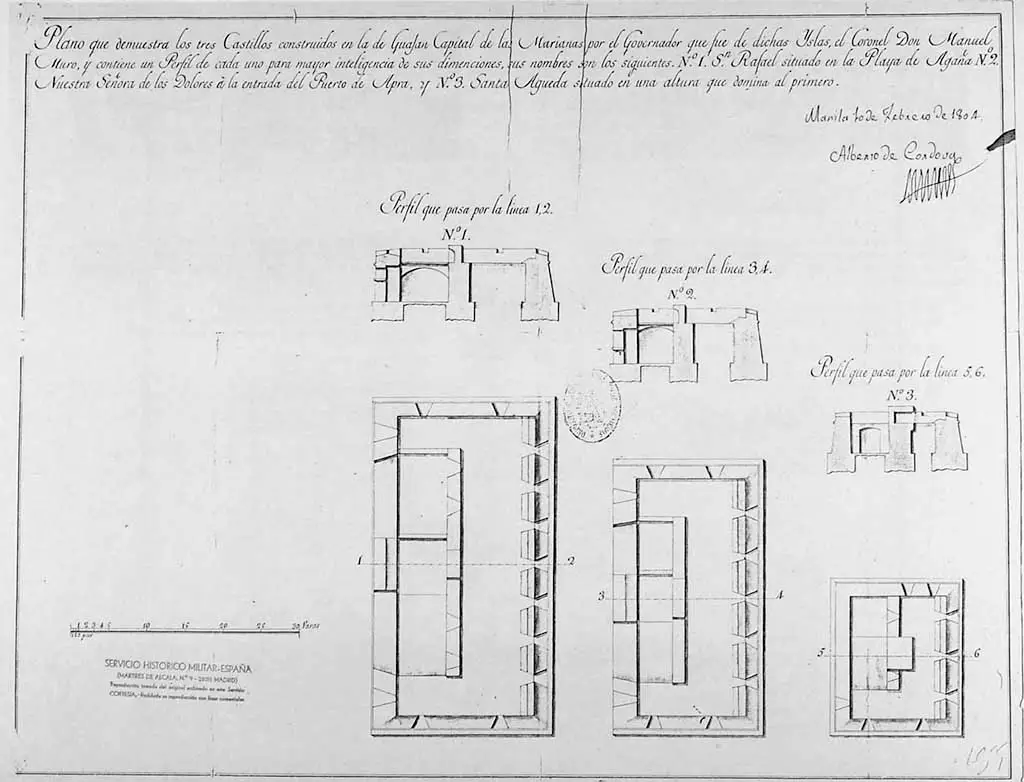 Plano que demuestra los tres Castillos construidos en la de Guajan Capital de las Marianas por el Governador que fue de dichas Yslas, el Coronel Don Manuel
Muro, y contiene un Perfil de cada uno para mayor inteligencia de sus dimenciones, sus nombres son los siguientes. N.º 1. S.n Rafael situado en la Playa de Agaña N.º 2.
Nuestra Señora de los Dolores à la entrada del Puerto de Apra, y N.º 3. Santa Agueda situado en una altura que domina al primero.
Manila 10 de Febrero de 1804.
Alberto de Cordova
Perfil que pasa por la linea 1,2.
N.º 1.
Perfil que pasa por la linea 3,4.
N.º 2.
Perfil que pasa por la linea 5,6.
N.º 3.
1 2
3 4
5 6
1 2 3 4 5 10 15 20 25 30 Varas
SERVICIO HISTORICO MILITAR-ESPAÑA
(MARTIRES DE ALCALA, N.º 9 - MADRID)
Reproducción tomada del original archivado en este Servicio
CORTESIA.- Prohibida su reproducción con fines comerciales